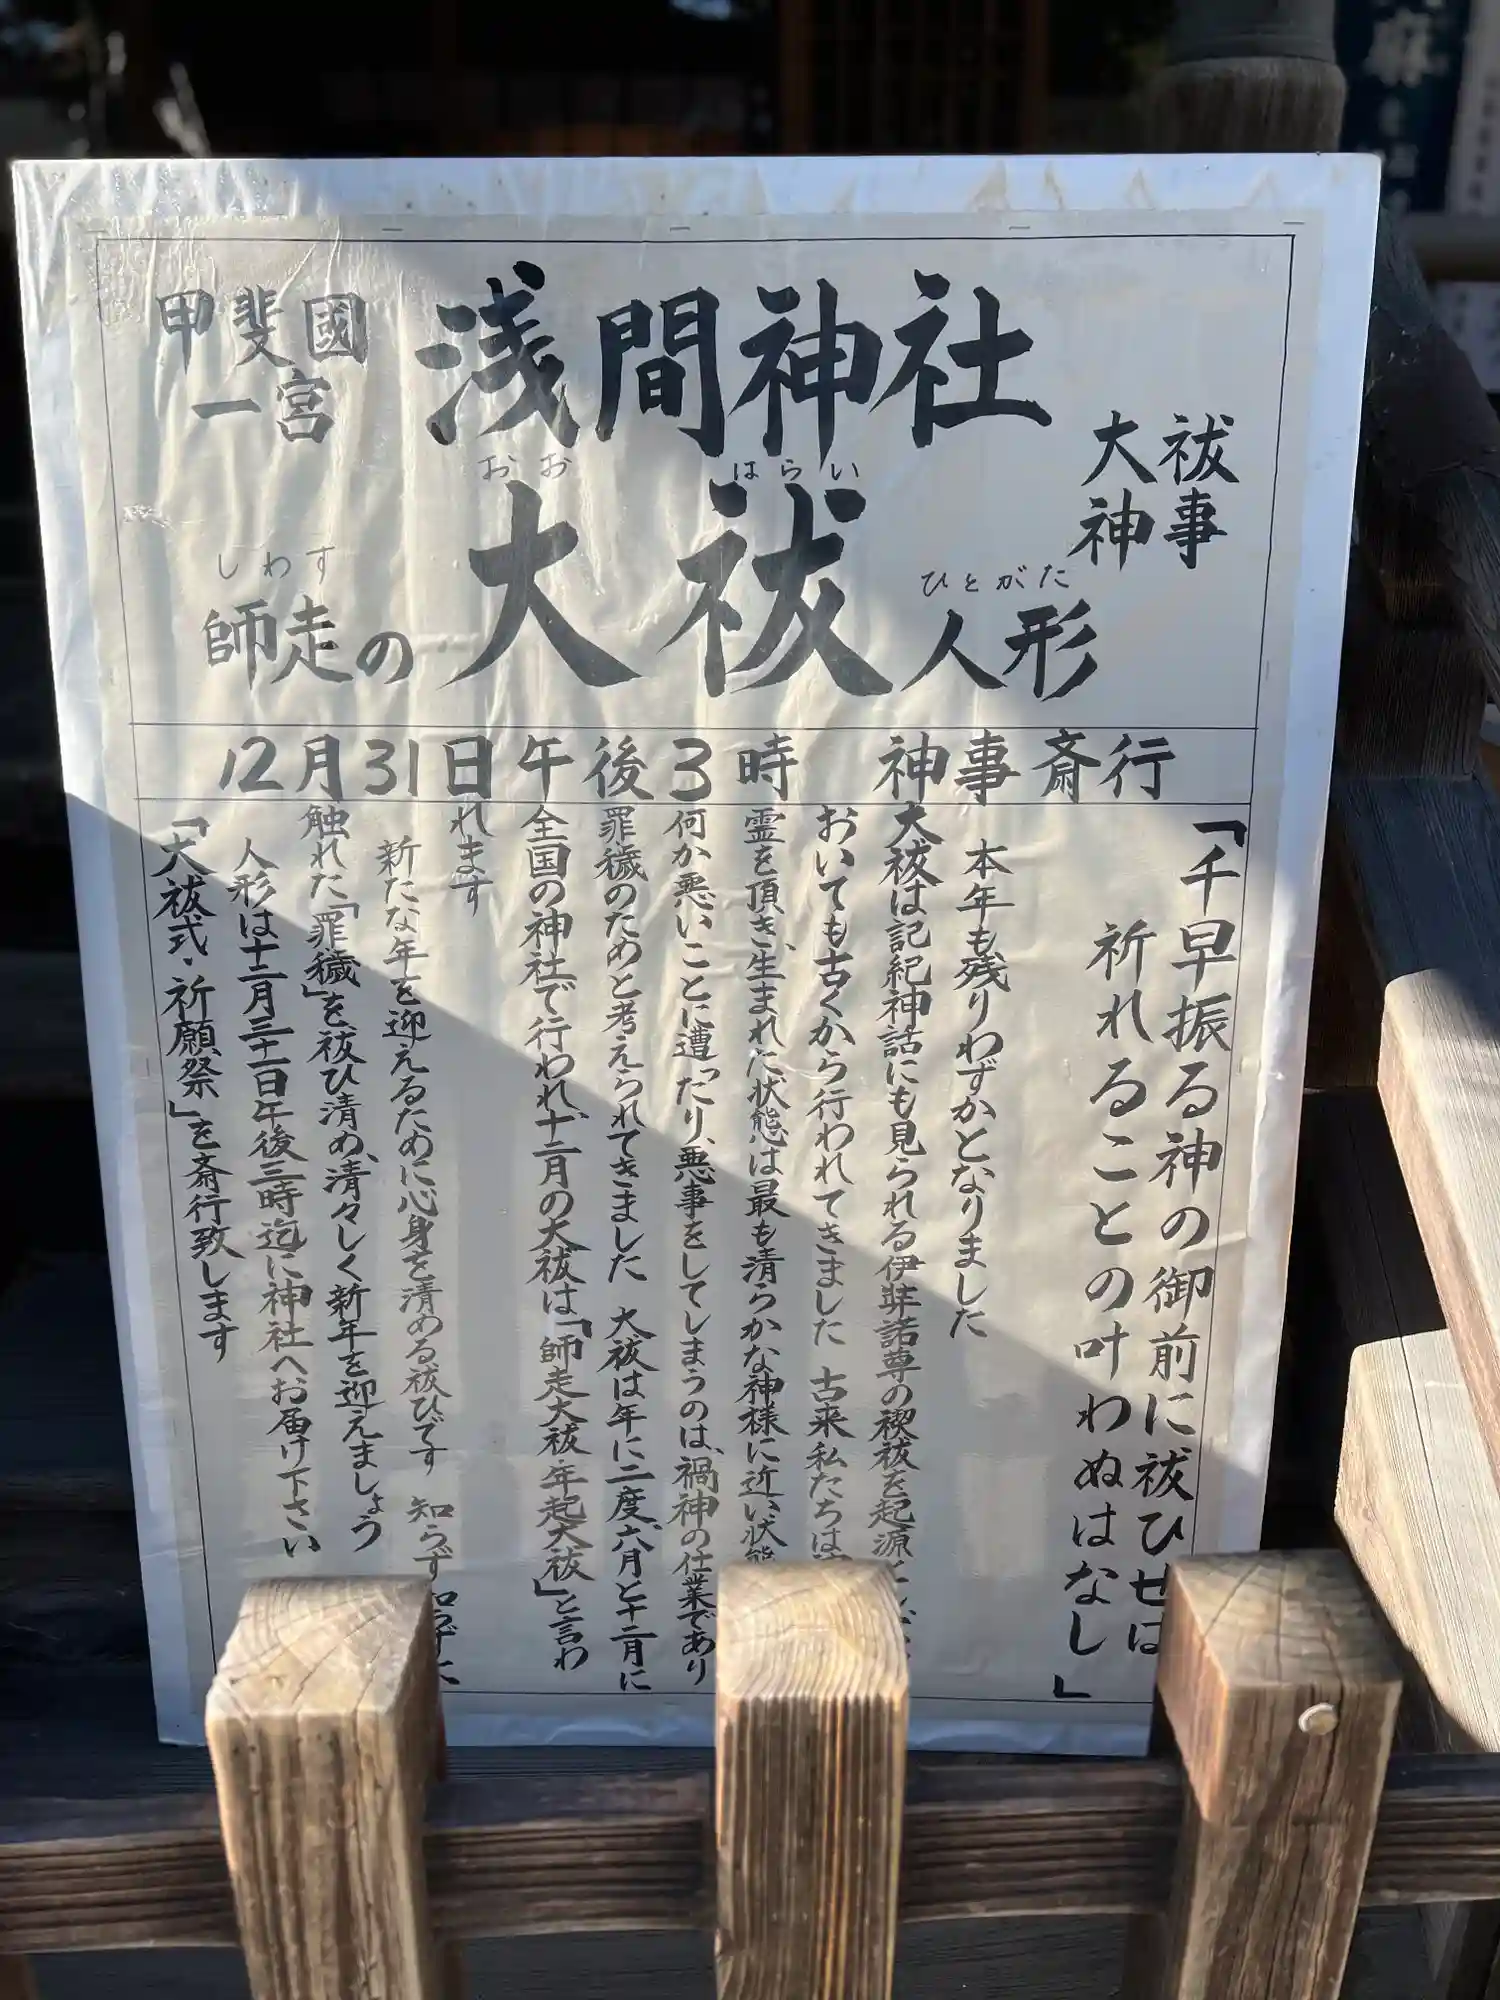 甲斐國
一宮
浅間神社
大祓
神事
おお はらい
しわす
ひとがた
師走の大祓人形
12月31日午後3時 神事斎行
「千早振る神の御前に祓ひせば
祈れることの叶わぬはなし」
本年も残りわずかとなりました
大祓は記紀神話にも見られる伊弉諾尊の禊祓を起源と
おいても古くから行われてきました 古来私たちは
霊を頂き、生まれた状態は最も清らかな神様に近い状態
何か悪いことに遭ったり、悪事をしてしまうのは、禍神の仕業であり
罪穢のためと考えられてきました 大祓は年に二度、六月と十二月に
全国の神社で行われ、十二月の大祓は「師走大祓・年起大祓」と言わ
れます
新たな年を迎えるために心身を清める祓ひです 知らず知らずに
触れた「罪穢」を祓ひ清め、清々しく新年を迎えましょう
人形は十二月三十一日午後三時迄に神社へお届け下さい
「大祓式・祈願祭」を斎行致します